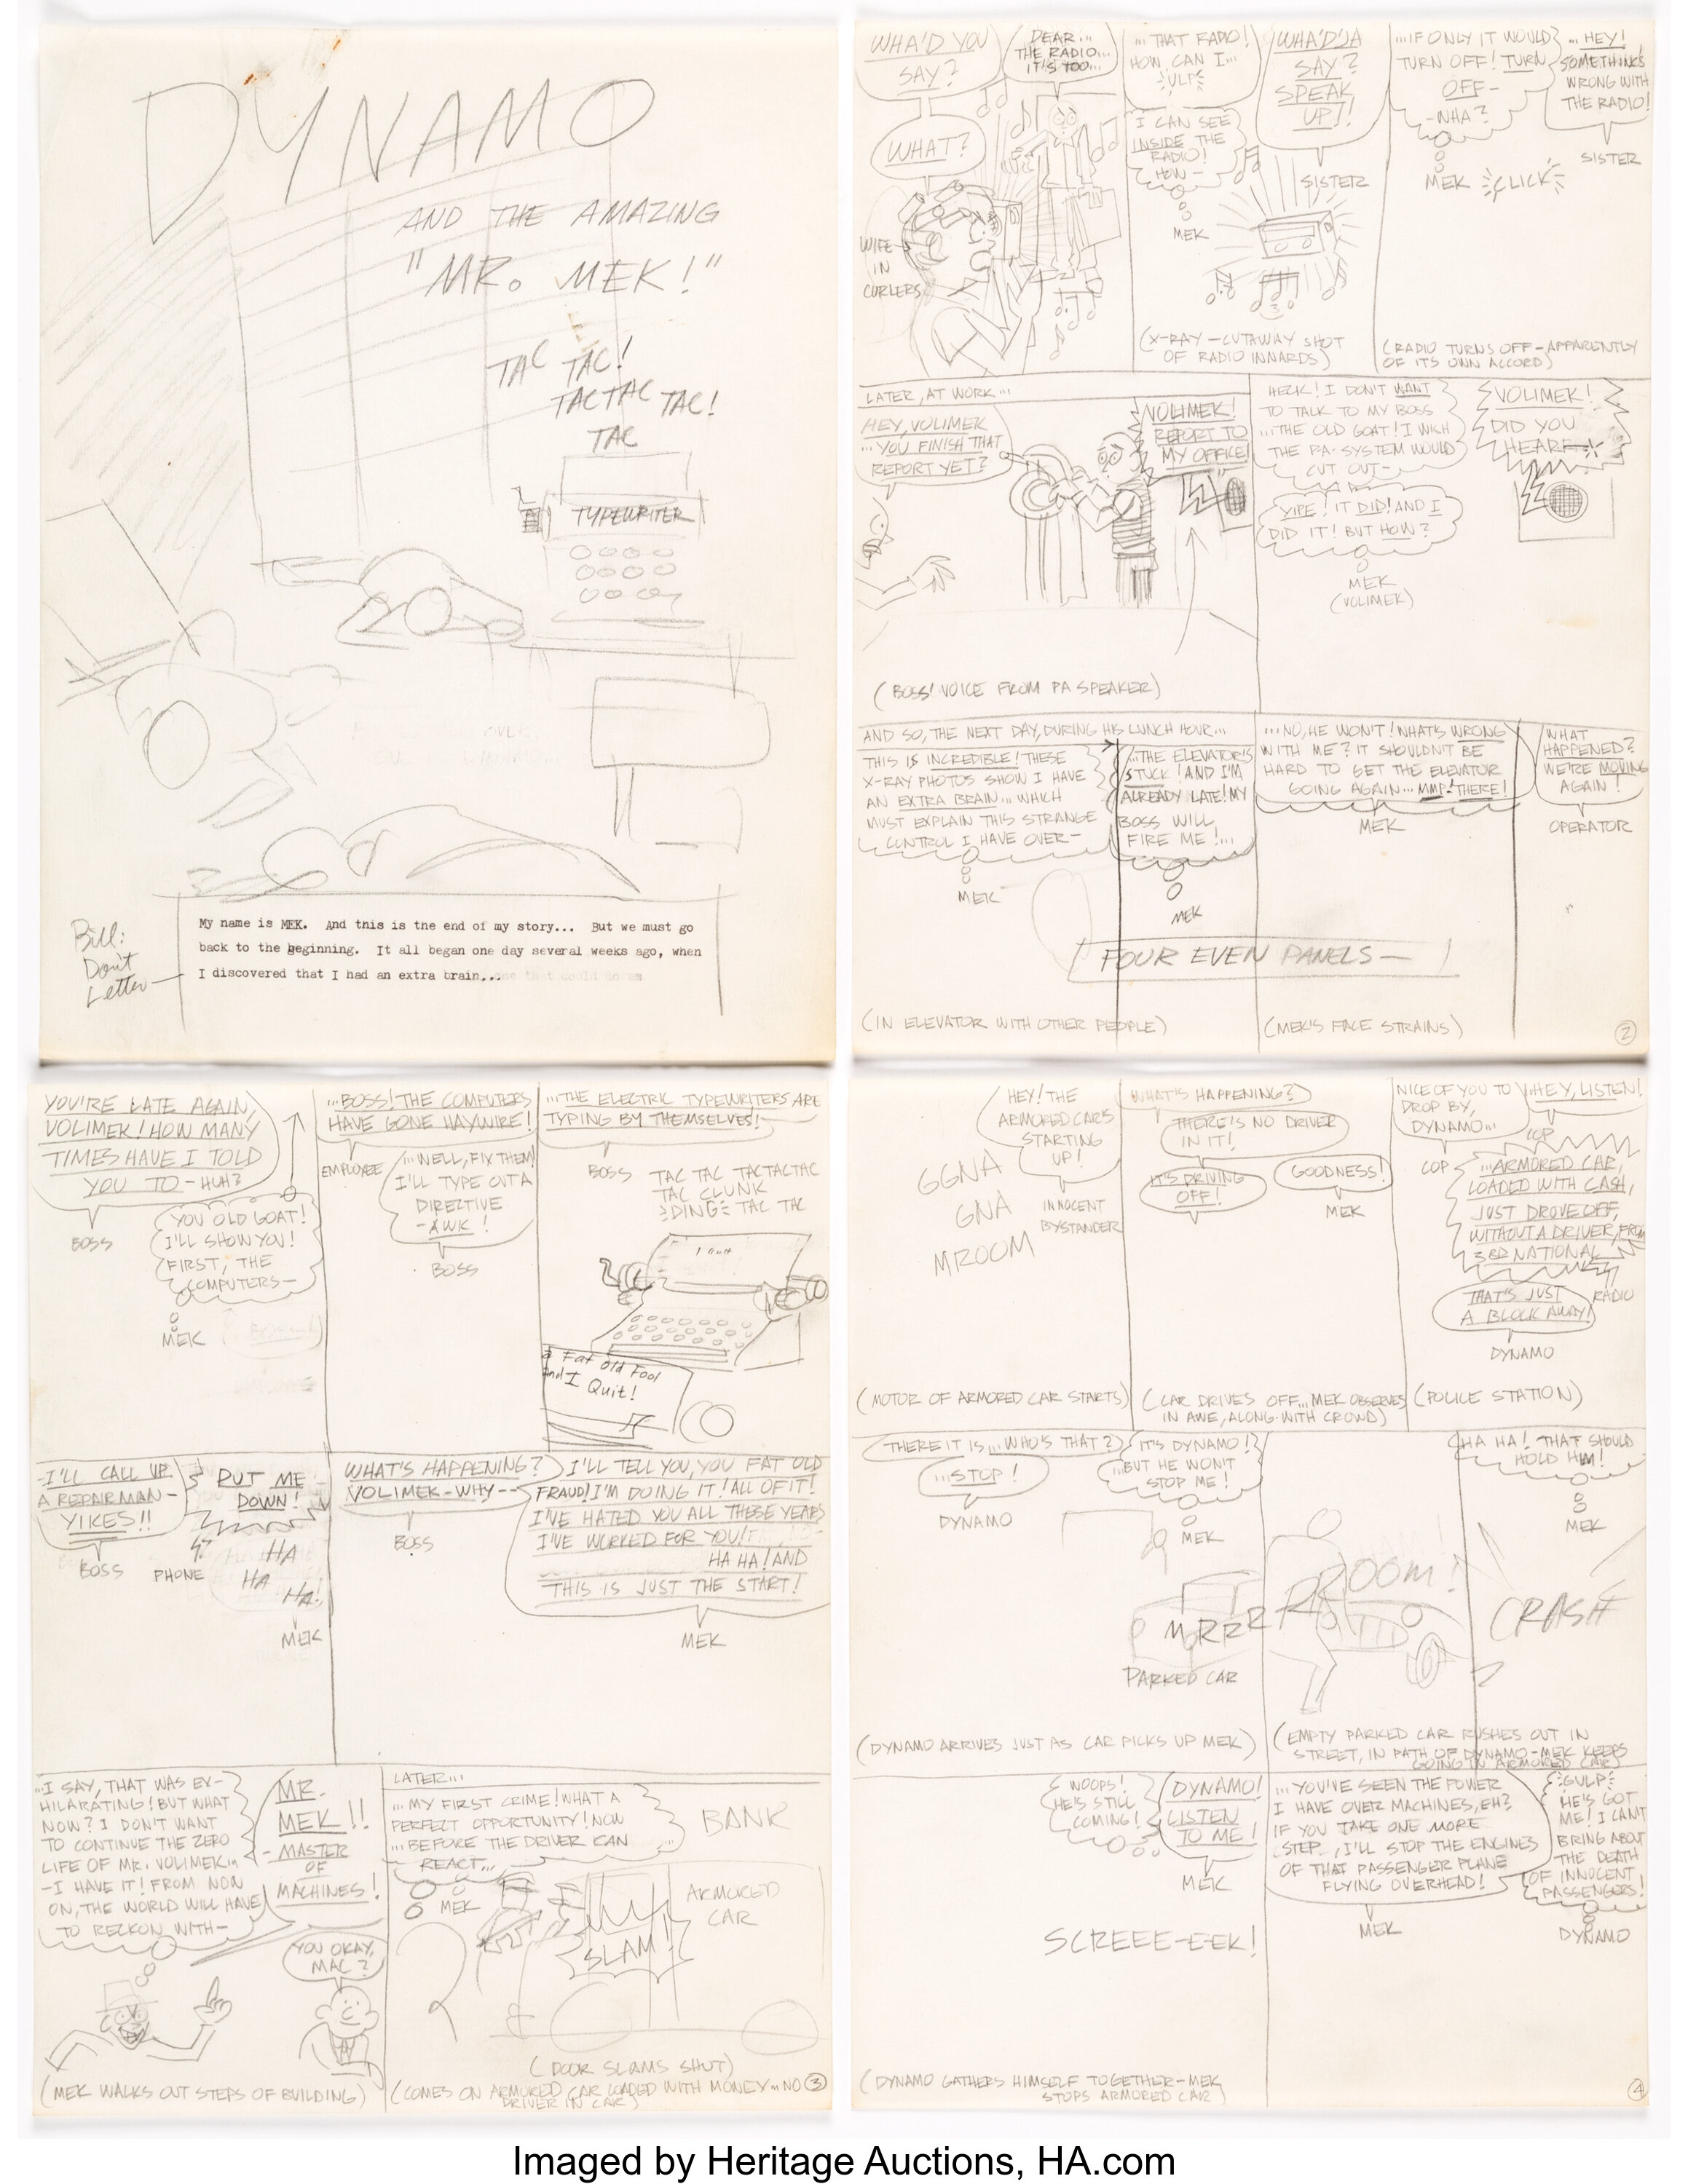 DYNAMO
AND THE AMAZING
"MR. MEK!"
TAC TAC!
TACTAC TAC!
TAC
TYPEWRITER
Bill:
Don't
Letter
My name is MEK. And this is the end of my story... But we must go
back to the beginning. It all began one day several weeks ago, when
I discovered that I had an extra brain...
WHA'D YOU
SAY?
WHAT?
DEAR...
THE RADIO...
IT'S TOO...
WIFE
IN
CURLERS
...THAT RADIO!
HOW CAN I...
ULP
I CAN SEE
INSIDE THE
RADIO!
HOW-
MEK
WHA'D'JA
SAY?
SPEAK
UP!!
SISTER
(X-RAY-CUTAWAY SHOT
OF RADIO INNARDS)
...IF ONLY IT WOULD
TURN OFF! TURN
OFF-
-WHA?
MEK
CLICK
...HEY!
SOMETHING'S
WRONG WITH
THE RADIO!
SISTER
(RADIO TURNS OFF-APPARENTLY
OF ITS OWN ACCORD)
LATER, AT WORK...
HEY, VOLIMEK
...YOU FINISH THAT
REPORT YET?
VOLIMEK!
REPORT TO
MY OFFICE!
(BOSS' VOICE FROM PA SPEAKER)
HECK! I DON'T WANT
TO TALK TO MY BOSS
...THE OLD GOAT! I WISH
THE PA-SYSTEM WOULD
CUT OUT-
YIPE! IT DID! AND I
DID IT! BUT HOW?
MEK
(VOLIMEK)
VOLIMEK!
DID YOU
HEAR-
AND SO, THE NEXT DAY, DURING HIS LUNCH HOUR...
THIS IS INCREDIBLE! THESE
X-RAY PHOTOS SHOW I HAVE
AN EXTRA BRAIN... WHICH
MUST EXPLAIN THIS STRANGE
CONTROL I HAVE OVER-
MEK
...THE ELEVATOR'S
STUCK! AND I'M
ALREADY LATE! MY
BOSS WILL
FIRE ME!...
MEK
...NO, HE WON'T! WHAT'S WRONG
WITH ME? IT SHOULDN'T BE
HARD TO GET THE ELEVATOR
GOING AGAIN... MMP! THERE!
MEK
WHAT
HAPPENED?
WE'RE MOVING
AGAIN!
OPERATOR
FOUR EVEN PANELS-
(IN ELEVATOR WITH OTHER PEOPLE)
(MEK'S FACE STRAINS)
2
YOU'RE LATE AGAIN,
VOLIMEK! HOW MANY
TIMES HAVE I TOLD
YOU TO-HUH?
BOSS
YOU OLD GOAT!
I'LL SHOW YOU!
FIRST, THE
COMPUTERS-
MEK
...BOSS! THE COMPUTERS
HAVE GONE HAYWIRE!
EMPLOYEE
...WELL, FIX THEM!
I'LL TYPE OUT A
DIRECTIVE
-AWK!
BOSS
...THE ELECTRIC TYPEWRITERS ARE
TYPING BY THEMSELVES!
BOSS
TAC TAC TACTACTAC
TAC CLUNK
DING TAC TAC
I Quit
a Fat Old Fool
and I Quit!
-I'LL CALL UP
A REPAIRMAN-
YIKES!!
BOSS
PUT ME
DOWN!
PHONE
HA
HA
HA!
MEK
WHAT'S HAPPENING?
VOLIMEK-WHY--
BOSS
I'LL TELL YOU, YOU FAT OLD
FRAUD! I'M DOING IT! ALL OF IT!
I'VE HATED YOU ALL THESE YEARS
I'VE WORKED FOR YOU!
HA HA! AND
THIS IS JUST THE START!
MEK
...I SAY, THAT WAS EX-
HILARATING! BUT WHAT
NOW? I DON'T WANT
TO CONTINUE THE ZERO
LIFE OF MR. VOLIMEK...
-I HAVE IT! FROM NOW
ON, THE WORLD WILL HAVE
TO RECKON WITH-
MR.
MEK!!
-MASTER
OF
MACHINES!
YOU OKAY,
MAC?
(MEK WALKS OUT STEPS OF BUILDING)
LATER...
...MY FIRST CRIME! WHAT A
PERFECT OPPORTUNITY! NOW
...BEFORE THE DRIVER CAN
REACT...
MEK
BANK
ARMORED
CAR
SLAM!
(DOOR SLAMS SHUT)
(COMES ON ARMORED CAR LOADED WITH MONEY-NO
DRIVER IN CAR)
3
HEY! THE
ARMORED CAR'S
STARTING
UP!
INNOCENT
BYSTANDER
GGNA
GNA
MROOM
(MOTOR OF ARMORED CAR STARTS)
WHAT'S HAPPENING?
THERE'S NO DRIVER
IN IT!
IT'S DRIVING
OFF!
GOODNESS!
MEK
(CAR DRIVES OFF... MEK OBSERVES
IN AWE, ALONG WITH CROWD)
NICE OF YOU TO
DROP BY,
DYNAMO...
COP
HEY, LISTEN!
COP
...ARMORED CAR,
LOADED WITH CASH,
JUST DROVE OFF,
WITHOUT A DRIVER, FROM
3RD NATIONAL
RADIO
THAT'S JUST
A BLOCK AWAY!
DYNAMO
(POLICE STATION)
THERE IT IS... WHO'S THAT?
...STOP!
DYNAMO
IT'S DYNAMO!
...BUT HE WON'T
STOP ME!
MEK
MRRRRROOM!
PARKED CAR
(DYNAMO ARRIVES JUST AS CAR PICKS UP MEK)
HA HA! THAT SHOULD
HOLD HIM!
MEK
CRASH
(EMPTY PARKED CAR RUSHES OUT IN
STREET, IN PATH OF DYNAMO-MEK KEEPS
GOING IN ARMORED CAR)
WOOPS!
HE'S STILL
COMING!
DYNAMO!
LISTEN
TO ME!
MEK
SCREEE-E-EK!
(DYNAMO GATHERS HIMSELF TOGETHER-MEK
STOPS ARMORED CAR)
...YOU'VE SEEN THE POWER
I HAVE OVER MACHINES, EH?
IF YOU TAKE ONE MORE
STEP..., I'LL STOP THE ENGINES
OF THAT PASSENGER PLANE
FLYING OVERHEAD!
MEK
GULP
HE'S GOT
ME! I CAN'T
BRING ABOUT
THE DEATH
OF INNOCENT
PASSENGERS!
DYNAMO
4
Imaged by Heritage Auctions, HA.com